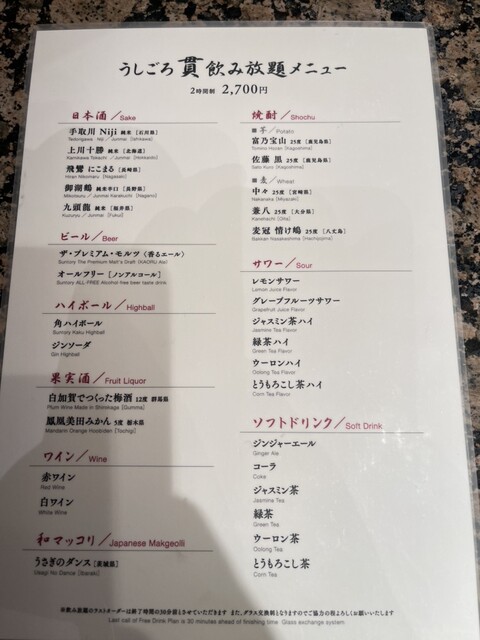 うしごろ 貫 飲み放題メニュー
2時間制 2,700円
日本酒／Sake
手取川 Niji 純米 [石川県]
Tedorigawa Niji / Junmai [Ishikawa]
上川十勝 純米 [北海道]
Kamikawa Tokachi / Junmai [Hokkaido]
飛鸞 にこまる [長崎県]
Hiran Nikomaru [Nagasaki]
御湖鶴 純米辛口 [長野県]
Mikotsuru / Junmai Karakuchi [Nagano]
九頭龍 純米 [福井県]
Kuzuryu / Junmai [Fukui]
ビール／Beer
ザ・プレミアム・モルツ〈香るエール〉
Suntory The Premium Malt's Draft 〈KAORU Ale〉
オールフリー [ノンアルコール]
Suntory ALL-FREE Alcohol-free beer taste drink
ハイボール／Highball
角ハイボール
Suntory Kaku Highball
ジンソーダ
Gin Highball
果実酒／Fruit Liquor
白加賀でつくった梅酒 12度 群馬県
Plum Wine Made in Shirakaga [Gunma]
鳳凰美田みかん 5度 栃木県
Mandarin Orange Hoobiden [Tochigi]
ワイン／Wine
赤ワイン
Red Wine
白ワイン
White Wine
和マッコリ／Japanese Makgeolli
うさぎのダンス [茨城県]
Usagi No Dance [Ibaraki]
焼酎／Shochu
芋／Potato
富乃宝山 25度 [鹿児島県]
Tomino Hozan [Kagoshima]
佐藤 黒 25度 [鹿児島県]
Sato Kuro [Kagoshima]
麦／Wheat
中々 25度 [宮崎県]
Nakanaka [Miyazaki]
兼八 25度 [大分県]
Kanehachi [Oita]
麦冠 情け嶋 25度 [八丈島]
Bakkan Nasakeshima [Hachijojima]
サワー／Sour
レモンサワー
Lemon Juice Flavor
グレープフルーツサワー
Grapefruit Juice Flavor
ジャスミン茶ハイ
Jasmine Tea Flavor
緑茶ハイ
Green Tea Flavor
ウーロンハイ
Oolong Tea Flavor
とうもろこし茶ハイ
Corn Tea Flavor
ソフトドリンク／Soft Drink
ジンジャーエール
Ginger Ale
コーラ
Coke
ジャスミン茶
Jasmine Tea
緑茶
Green Tea
ウーロン茶
Oolong Tea
とうもろこし茶
Corn Tea
※飲み放題のラストオーダーは終了時間の30分前とさせていただきます また、グラス交換制となりますのでご協力の程よろしくお願いいたします
Last call of Free Drink Plan is 30 minutes ahead of finishing time Glass exchange system